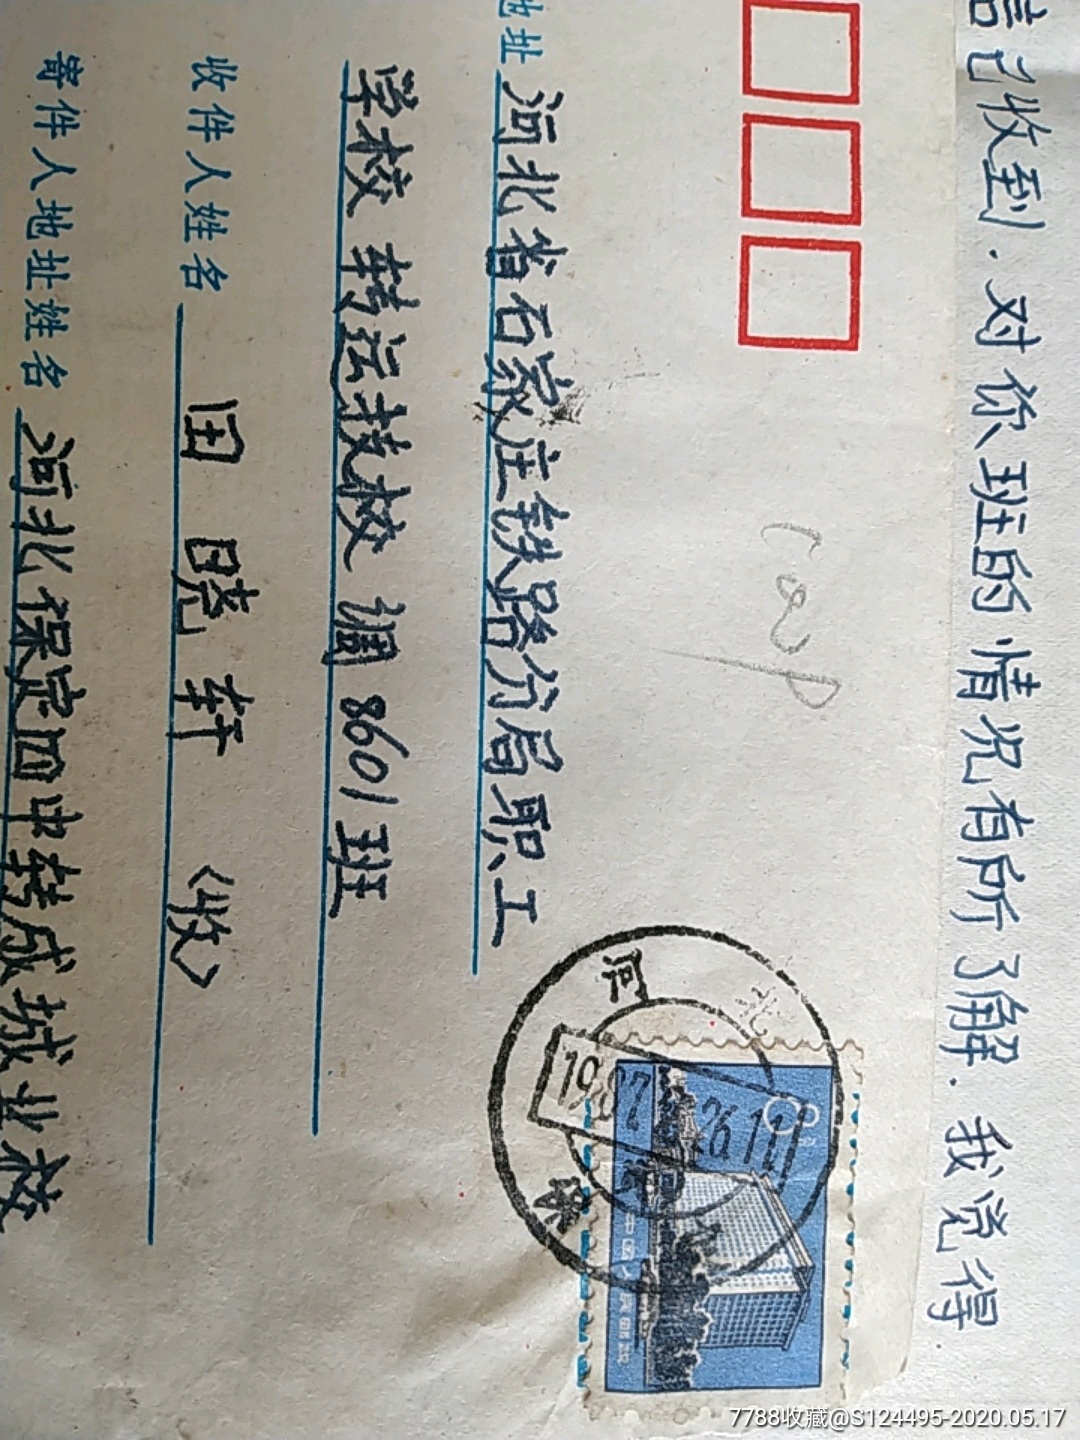 信已收到.对你班的情况有所了解.我觉得
地址 河北省石家庄铁路分局职工
学校 转运技校 调8601班
收件人姓名 田晓轩(收)
寄件人地址姓名 河北保定四中转成城业校
河北
1987
26.11
保
中国人民邮政
7788收藏@S124495-2020.05.17